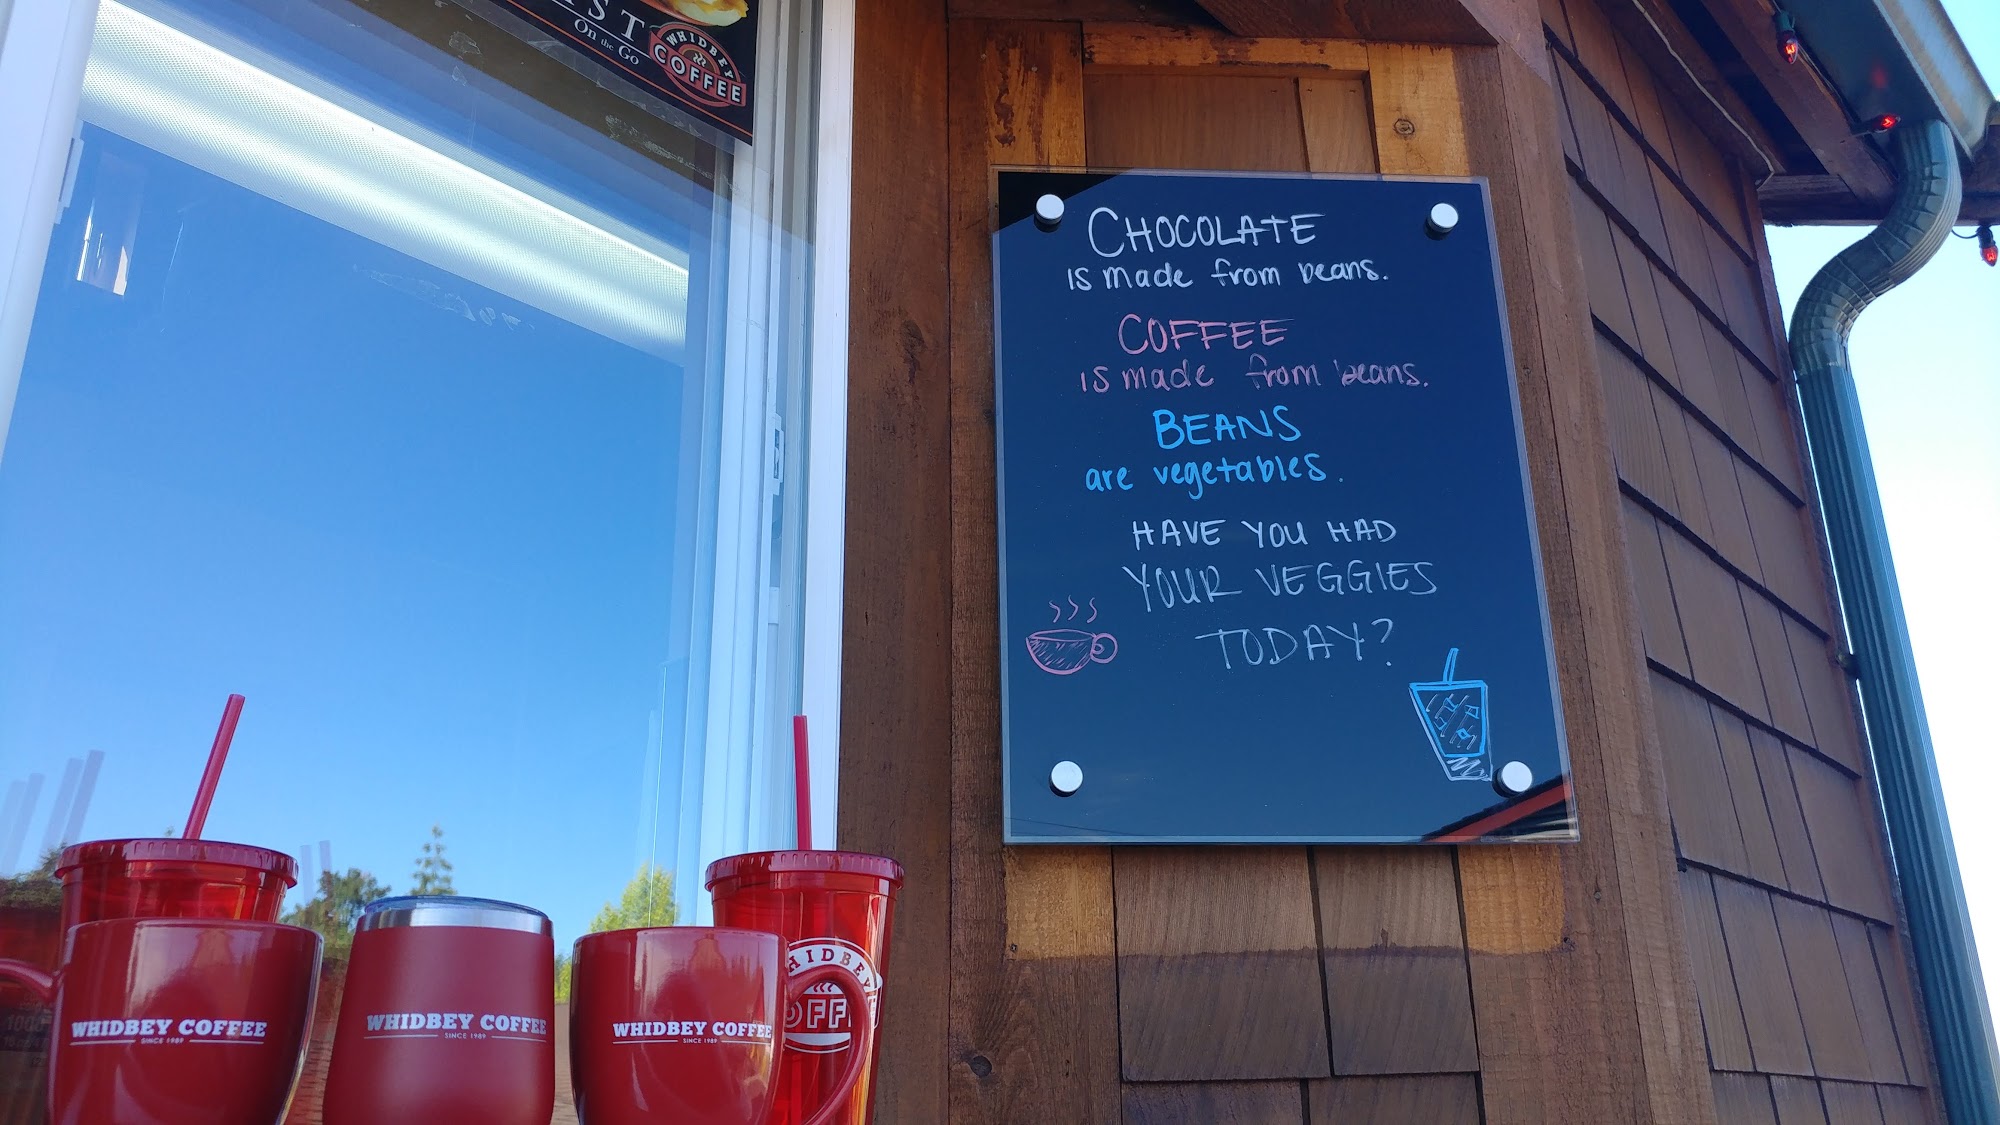 On the Go
WHIDBEY
COFFEE
CHOCOLATE
is made from beans.
COFFEE
is made from beans.
BEANS
are vegetables.
HAVE YOU HAD
YOUR VEGGIES
TODAY?
WHIDBEY COFFEE
SINCE 1989
WHIDBEY COFFEE
SINCE 1989
WHIDBEY COFFEE
SINCE 1989